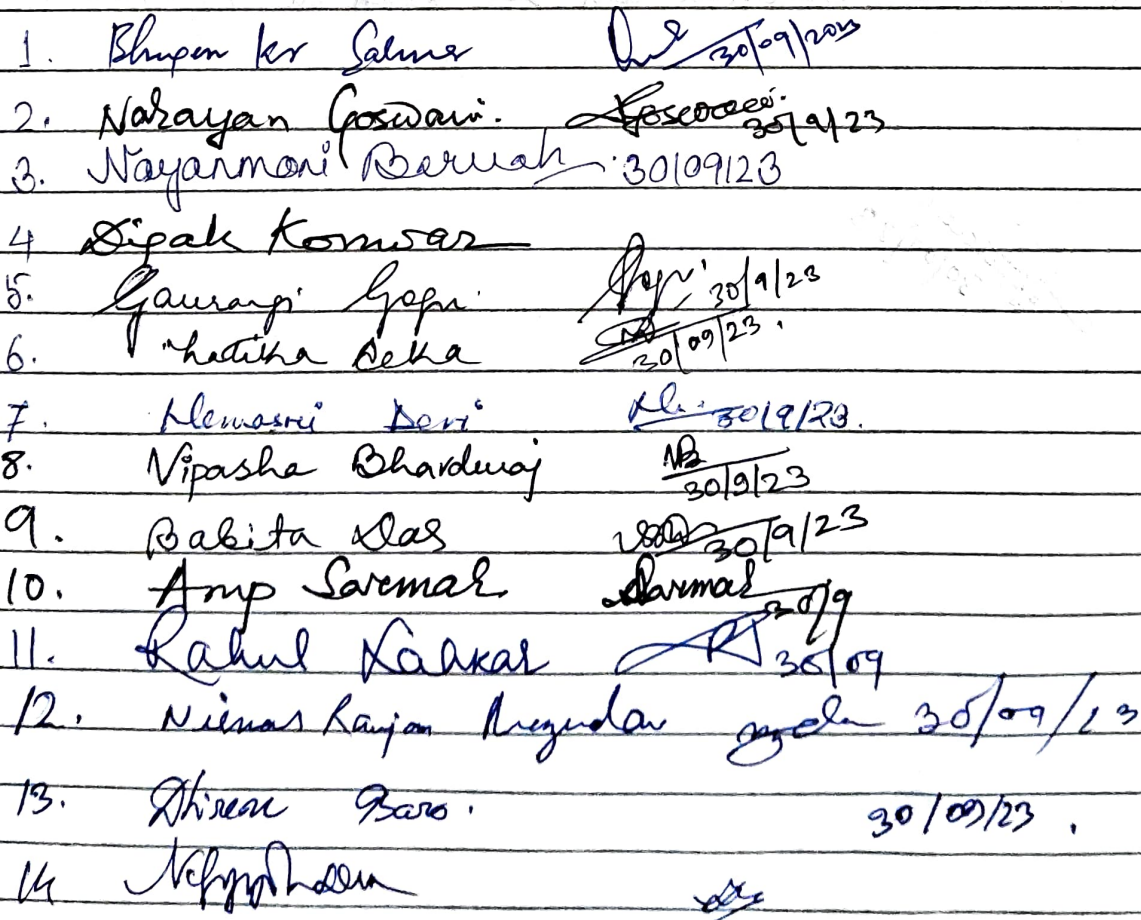 1. Bhupen kr Sahma 30/09/2023
2. Narayan Goswami. Goswami 30/9/23
3. Nayanmoni Baruah 30/09/23
4 Dipak Konwar
5. Gaurangi Gogoi 30/9/23
6. Latika Deka 30/09/23.
7. Hemasri Devi 30/9/23.
8. Nipasha Bhardwaj NB 30/9/23
9. Babita Das 30/9/23
10. Anup Sarmah Sarmah 30/9
11. Rahul 30/09
12. Ranjan 30/09/23
13. Dhiren Baro. 30/09/23.
14